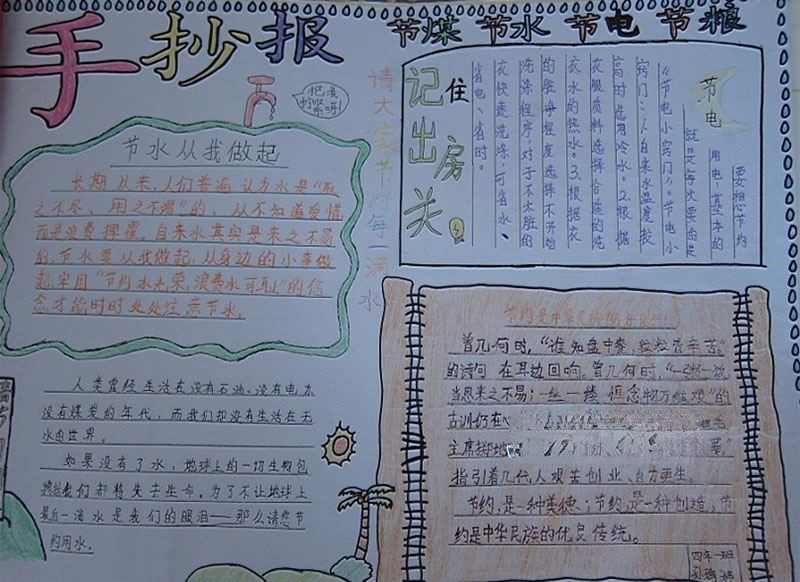 手抄报
节煤 节水 节电 节粮
节水从我做起
长期以来,人们普遍认为水是“取
之不尽、用之不竭”的、从不知道爱惜
而是浪费挥霍。自来水其实是来之不易
的,节水要从我做起,从身边的小事做
起,牢固“节约水光荣,浪费水可耻”的信
念,才能时时处处注意节水。
请大家节约每一滴水
人类曾经生活在没有石油、没有电亦
没有煤炭的年代,而我们却没有生活在无
水的世界。
如果没有了水,地球上的一切生物包
括我们都将失去生命。为了不让地球上
最后一滴水是我们的眼泪——那么请您节
约用水。
记住
出房
关
节电
要想节约
用电,基本的
就是每次要的是
“节电小窍门”。节电小
窍门:1.自来水温度较
高时选用冷水。2.根据
衣服质料选择合适的洗
衣水的热水。3.根据衣
的脏净程度选择不开始
洗涤程序,对于不太脏的
衣快速洗涤,可省水、
省电、省时。
节约是中华民族的
曾几何时,“谁知盘中餐,粒粒皆辛苦”
的诗句在耳边回响。曾几何时,“一粥一饭,
当思来之不易;一丝一缕 恒念物力维艰”的
古训仍在
主席掷地
指引着几代人艰苦创业、自力更生。
节约,是一种美德;节约,是一种创造;节
约是中华民族的优良传统。
四年一班